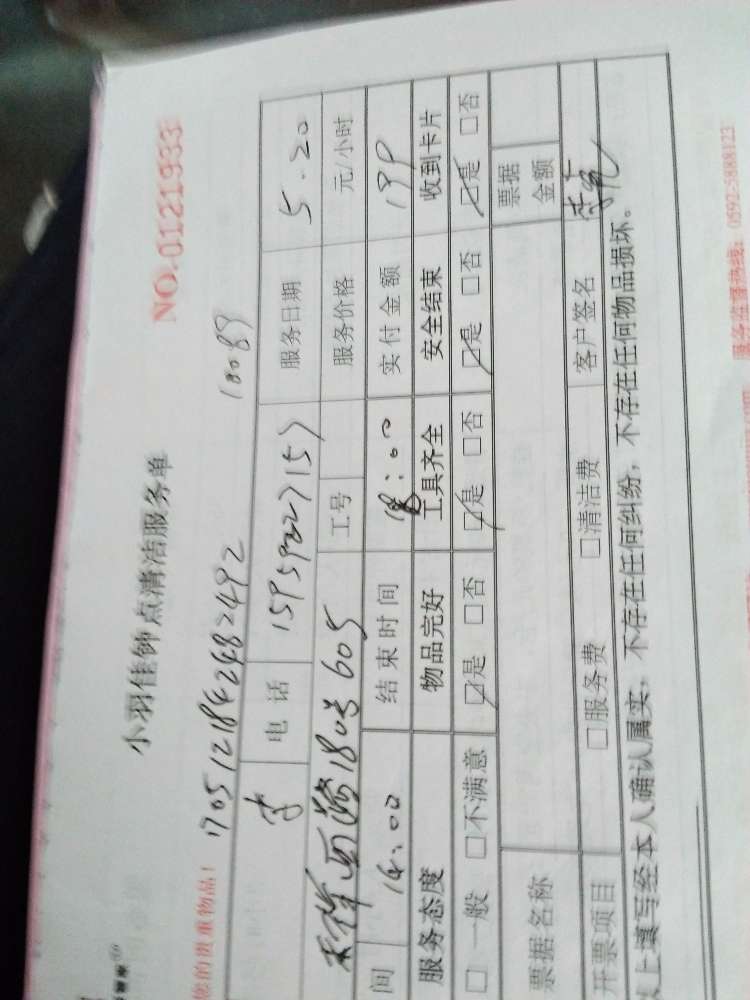 小羽佳钟点清洁服务单 NO.0121933
您的贵重物品! 1705121842482492 10089
李 电话 15959227157 服务日期 5.20
西潘180号605 工号 服务价格 元/小时
间 14:00 结束时间 18:00 实付金额 199
服务态度 物品完好 工具齐全 安全结束 收到卡片
□一般 □不满意 □是 □否 □是 □否 □是 □否 □是 □否
票据名称 票据金额
开票项目 □服务费 □清洁费 客户签名
以上填写经本人确认属实,不存在任何纠纷,不存在任何物品损坏。
服务监督热线: 0592-5888123